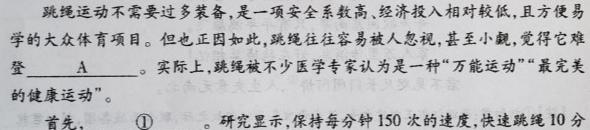 跳绳运动不需要过多装备,是一项安全系数高、经济投入相对较低,且方便易
学的大众体育项目。但也正因如此,跳绳往往容易被人忽视,甚至小觑,觉得它难
登____A____。实际上,跳绳被不少医学专家认为是一种“万能运动”“最完美
的健康运动”。
首先,____①____。研究显示,保持每分钟150次的速度,快速跳绳10分